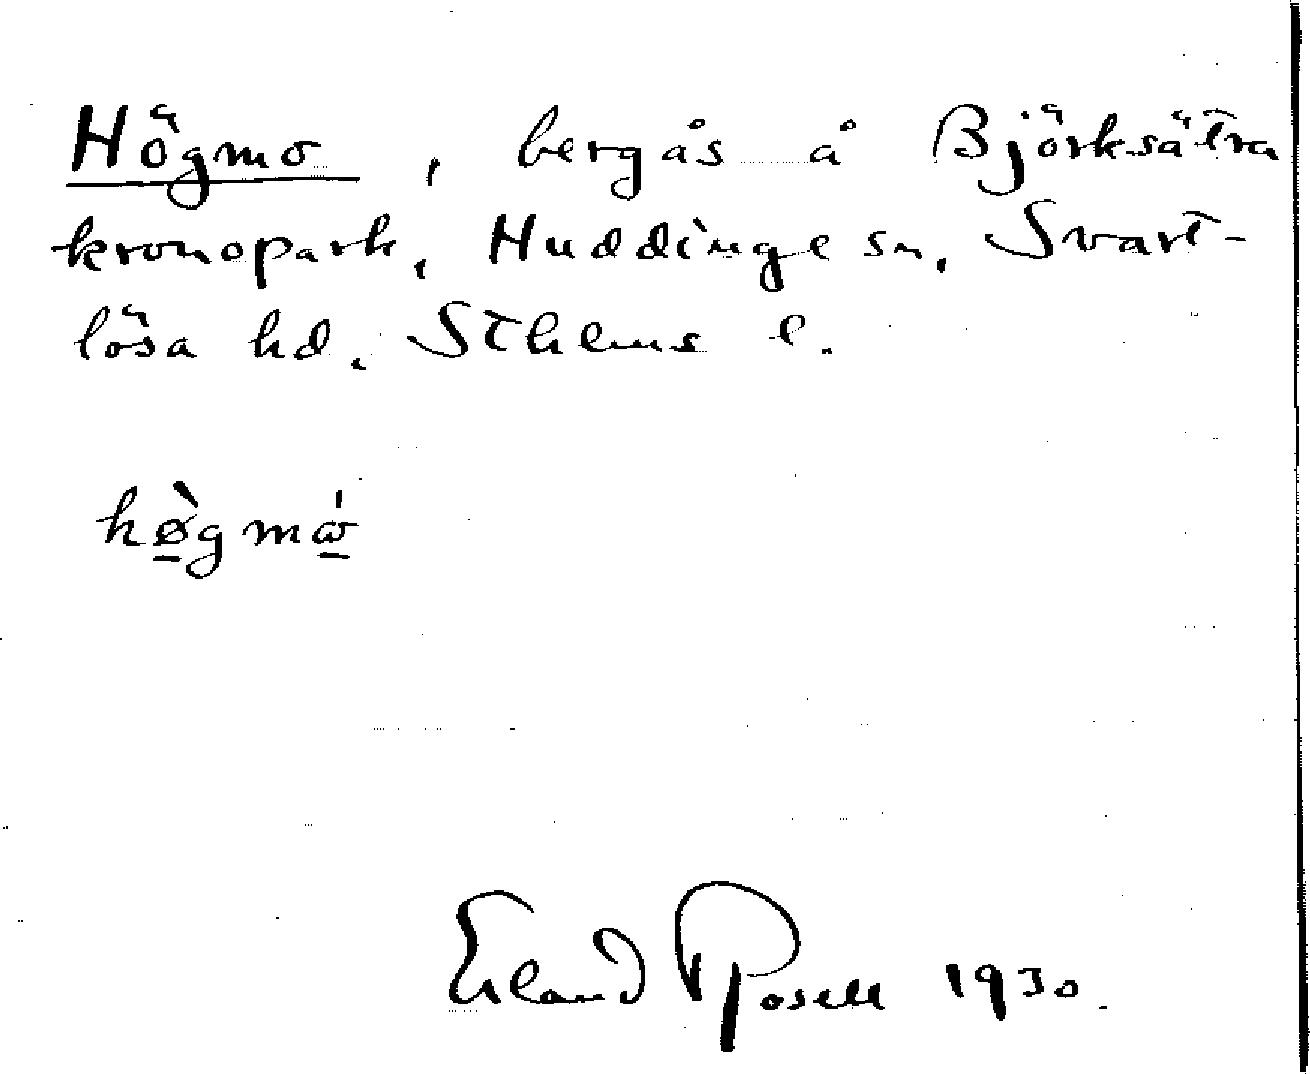 Högmo, bergås å Björksätra
kronopark, Huddinge sn, Svart-
lösa hd, Sthlms l.
hø̀gmω̍
Erland Rosell 1930.